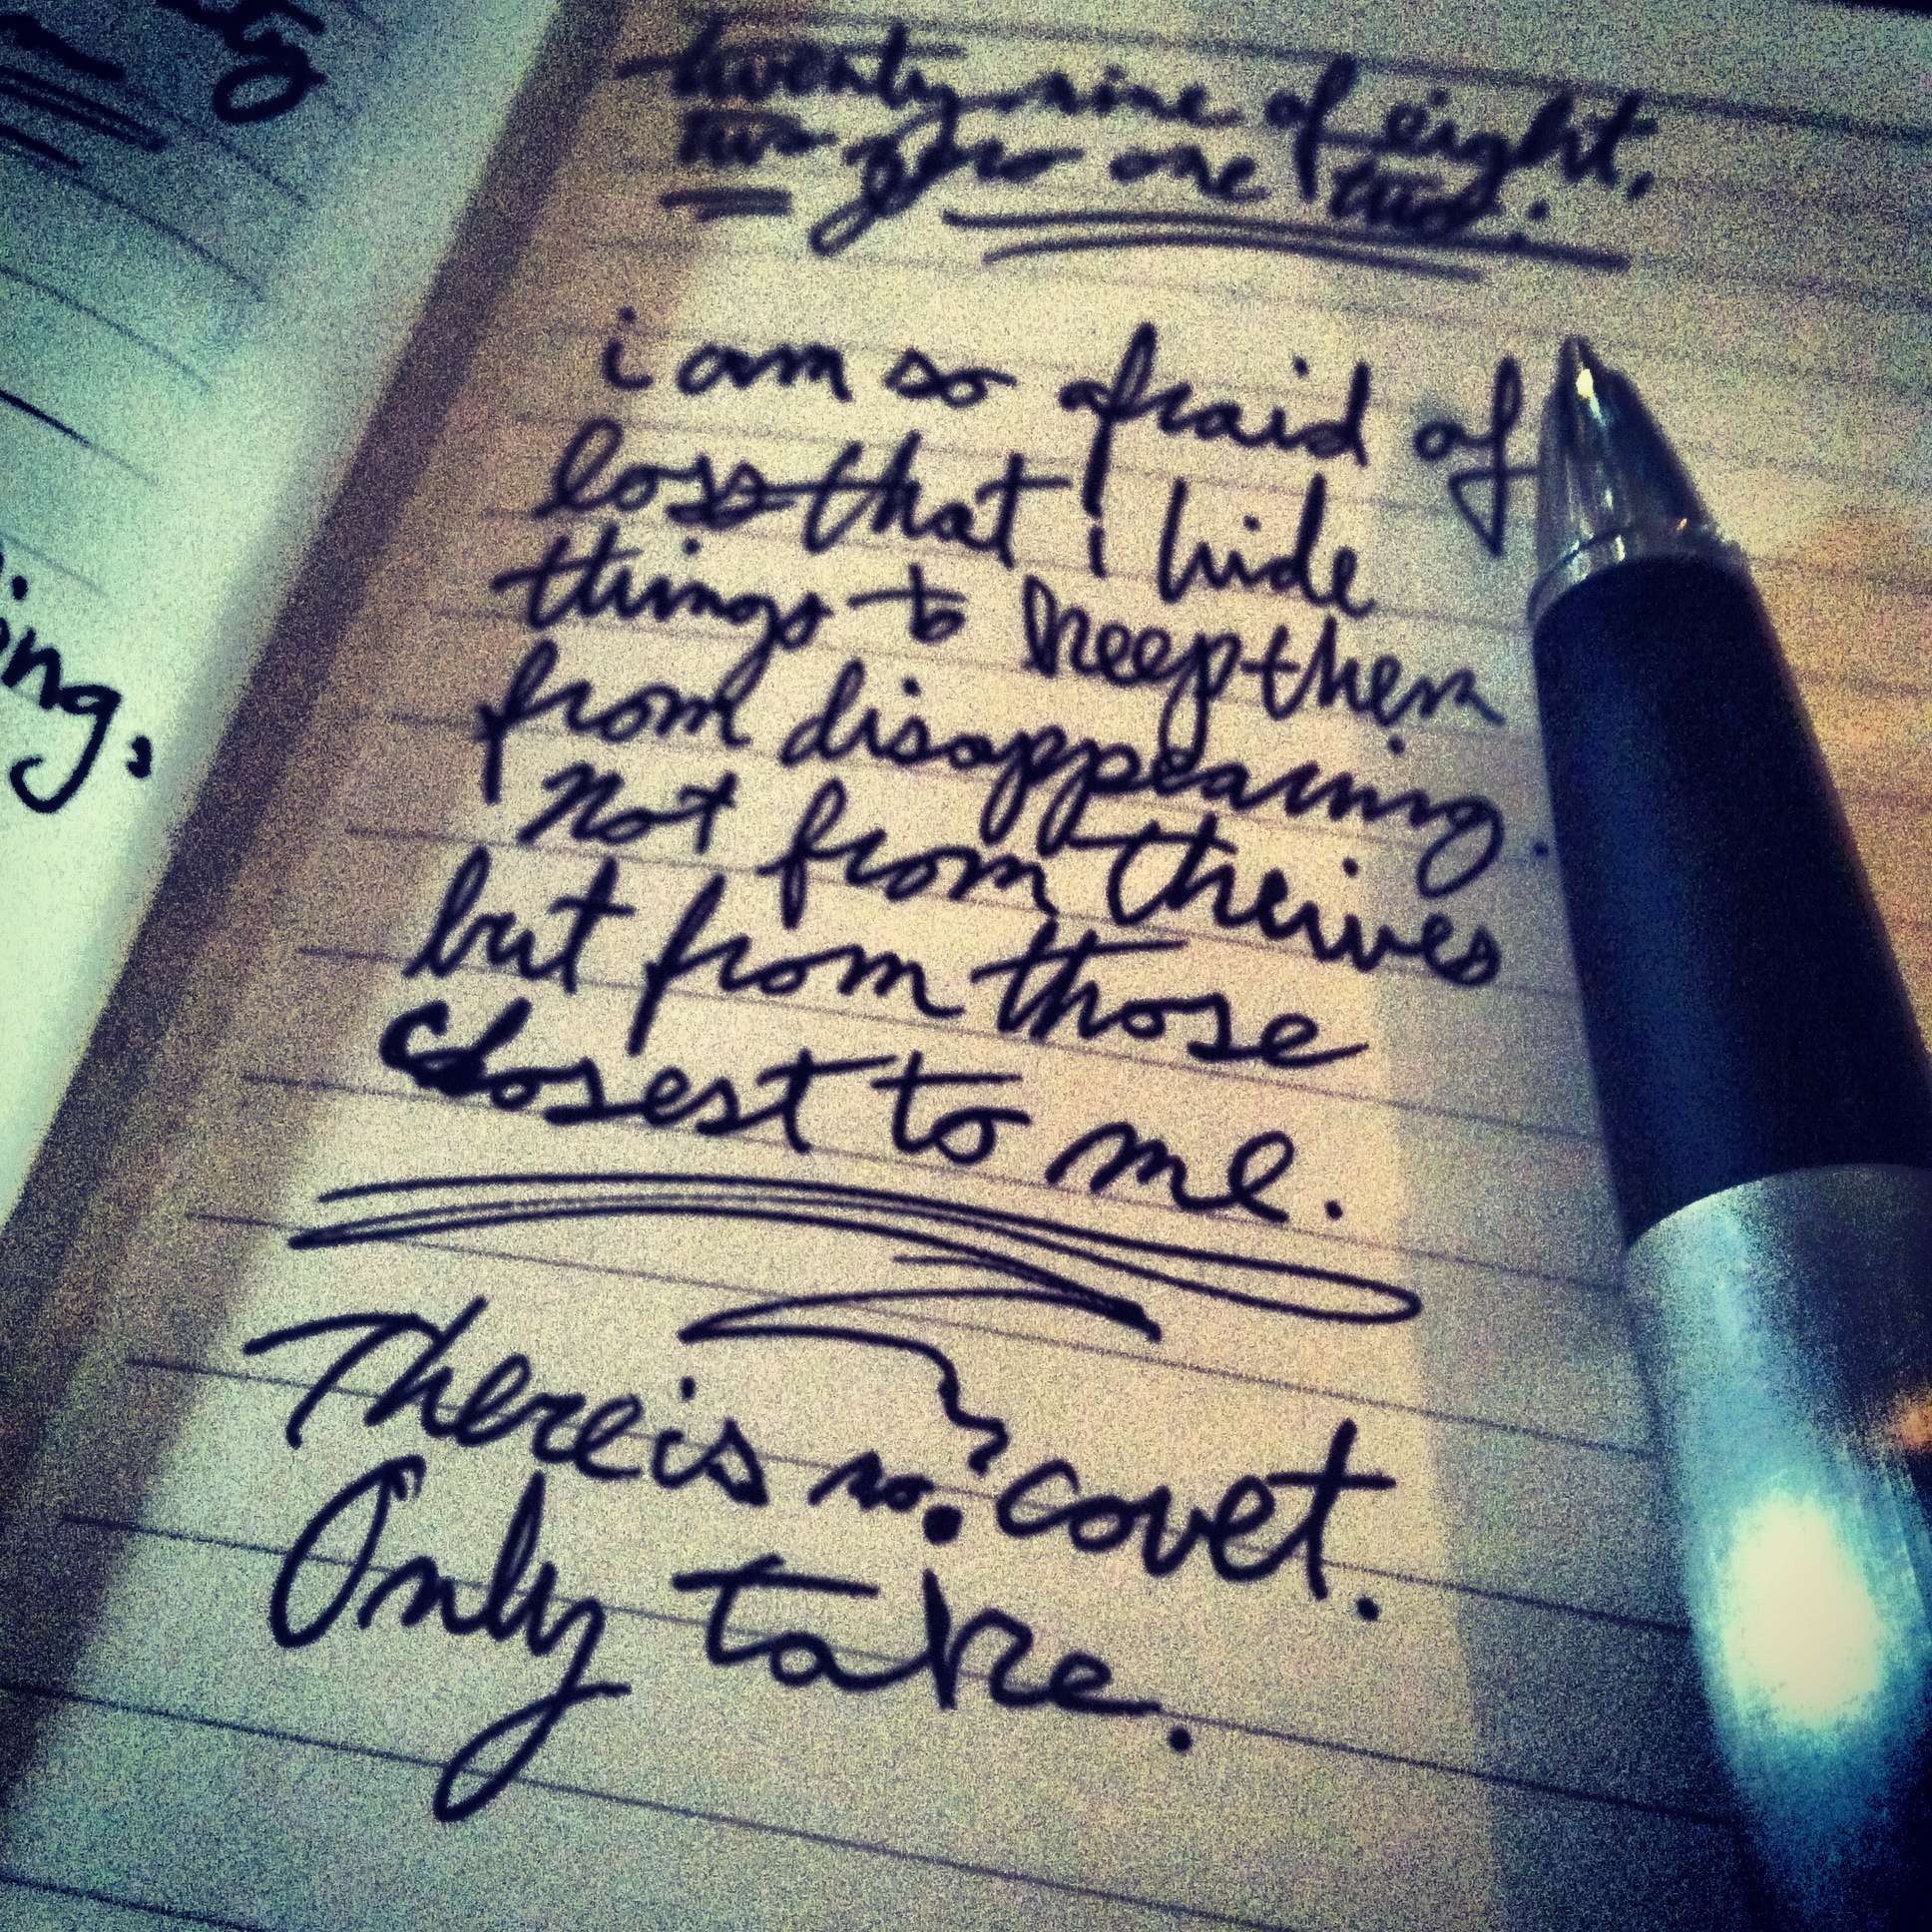 ing,
twenty nine of eight,
two zero one two.
i am so afraid of
loss that i hide
things to keep them
from disappearing.
not from theives
but from those
closest to me.
There is no covet.
Only take.